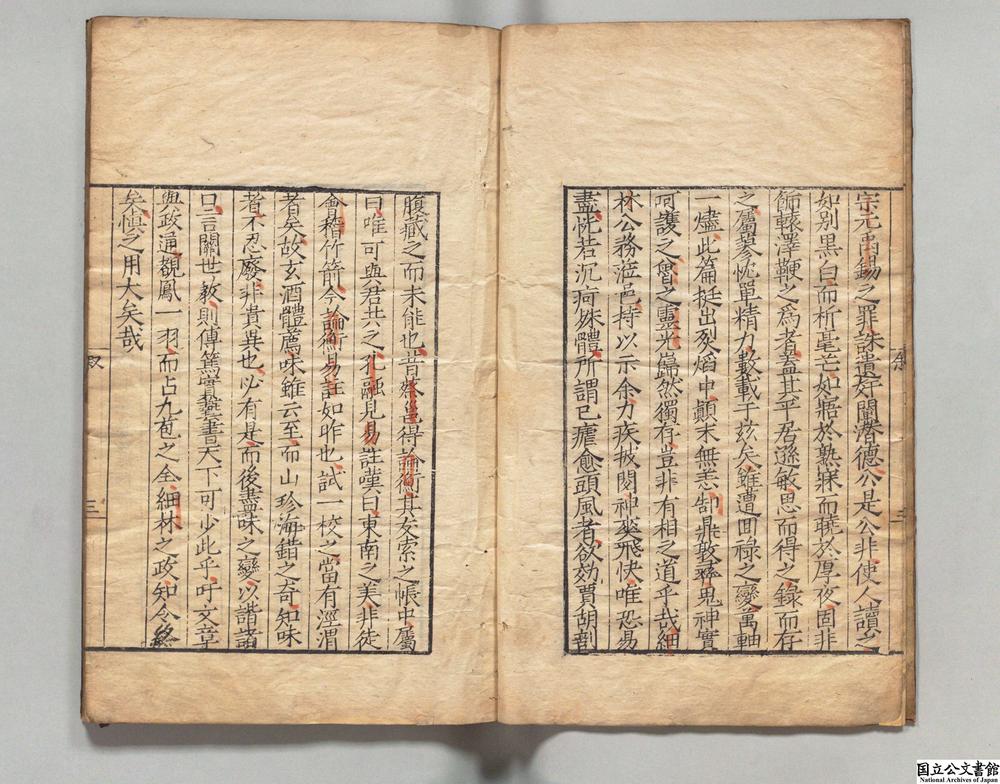 宗元禹錫之罪誅遺奸闡潛德公是公非使人讀之
如別黑白而析毫芒如寤於熟寐而曉於厚夜固非
飾轅澤鞭之為者蓋其平居遜敏思而得之錄而存
之屬蓼忱單精力數載于玆矣雖遭回祿之變萬軸
一燼此篇挺出烈熖中顛末無恙郜鼎敦彞鬼神實
呵護之魯之靈光巋然獨存豈非有相之道乎哉細
林公務涖邑持以示余力疾披閱神爽飛快唯恐易
盡恍若沉疴姝體所謂已瘧愈頭風者欲効賈胡剖
腹藏之而未能也昔蔡邕得論衡其友索之帳中屬
曰唯可與君共之孔融見易註嘆曰東南之美非徒
會稽竹箭今論衡易註如昨也試一校之當有涇渭
者矣故玄酒體薦味雖云至而山珍海錯之奇知味
者不忍廢非貴異也必有是而後盡味之變以諧諸
口言關世敎則傳篤實藝書天下可少此乎吁文章
與政通覩鳳一羽而占九苞之全細林之政知令終
矣愼之用大矣哉
叙
三
叙
三
国立公文書館
National Archives of Japan